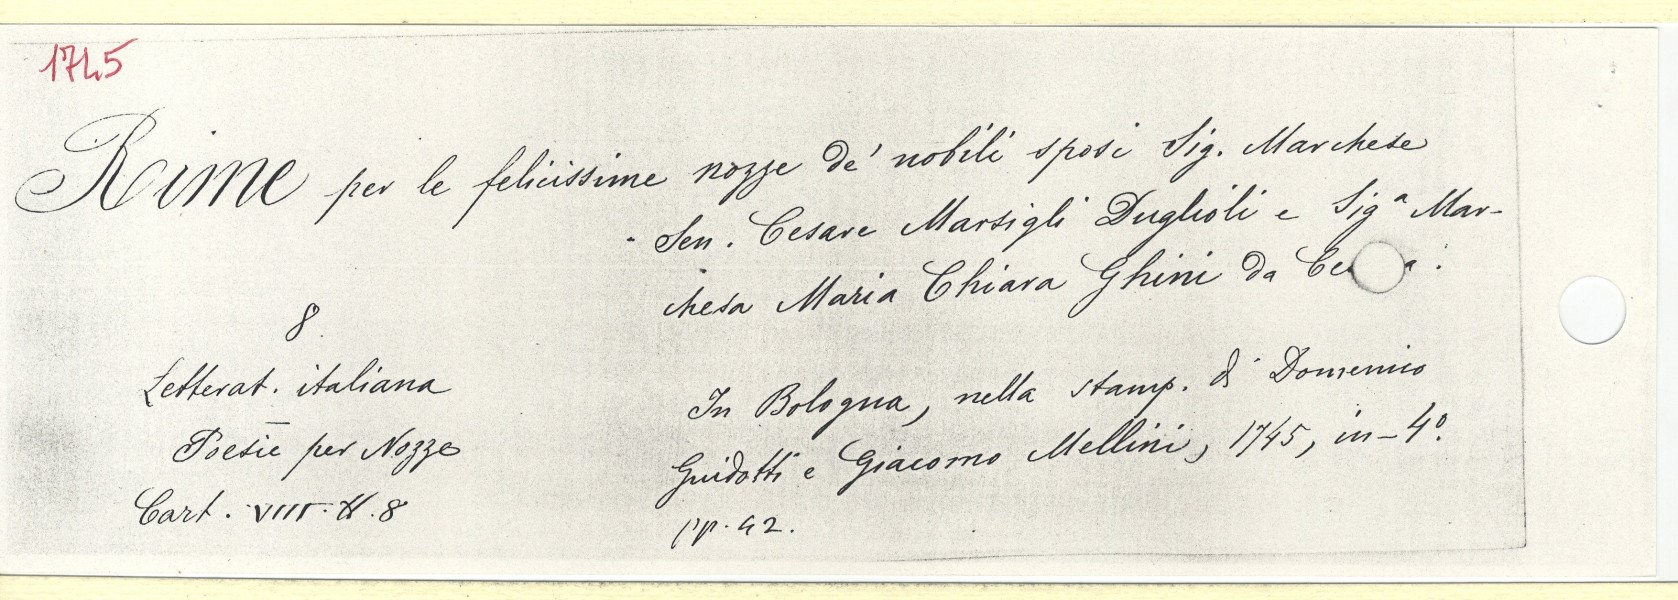 1745
Rime per le felicissime nozze de' nobili sposi Sig. Marchese
Sen. Cesare Marsigli Duglioli e Sigª Mar-
chesa Maria Chiara Ghini da
8
Letterat. italiana
Poesie per Nozze
Cart. VIII. 8
In Bologna, nella stamp. di Domenico
Guidotti e Giacomo Mellini, 1745, in-4º.
pp. 42.